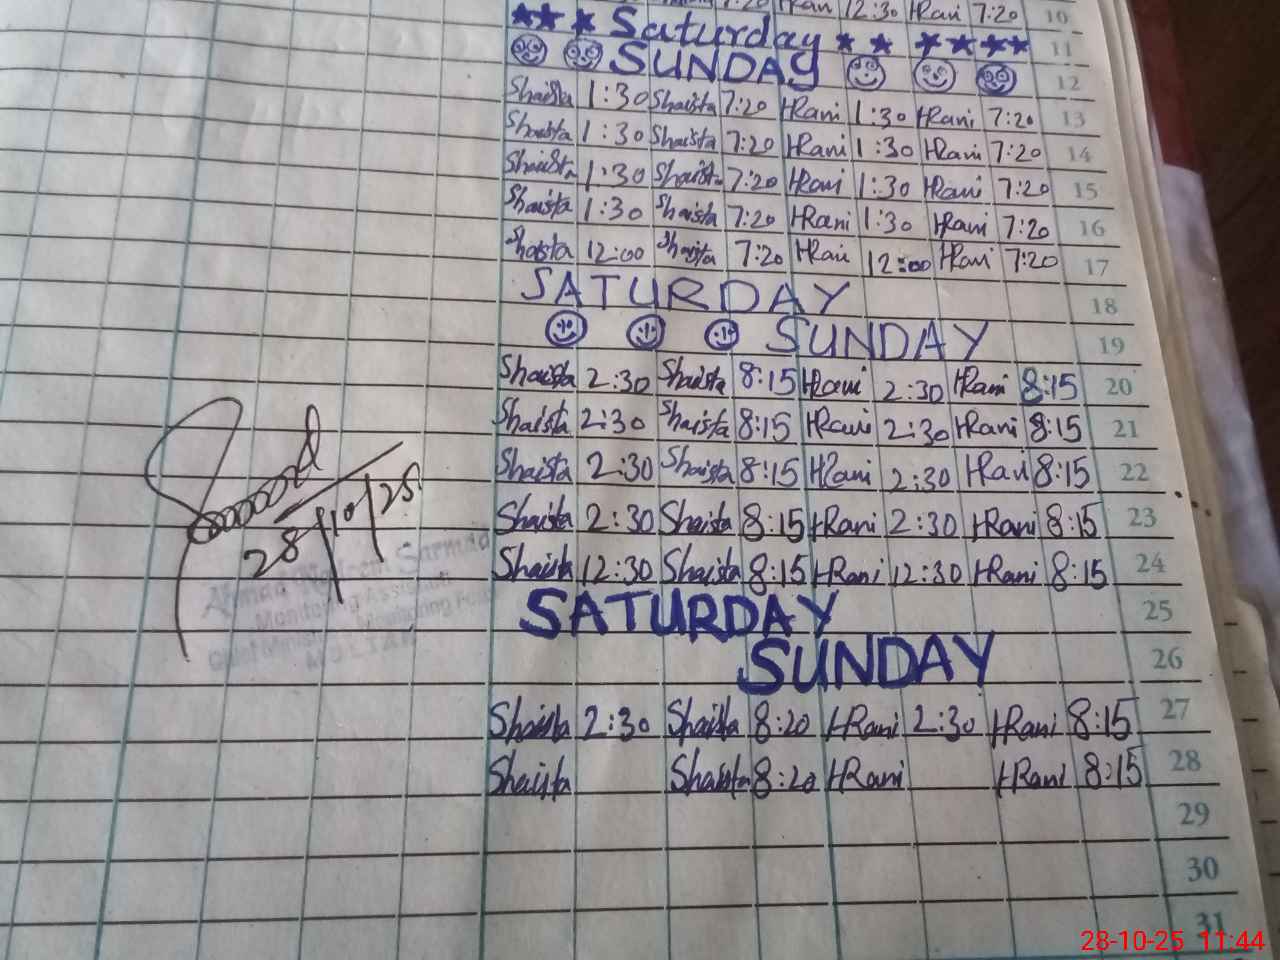 7:20 HRani 12:30 HRani 7:20 10
Saturday 11
SUNDAY 12
Shaista 1:30 Shaista 7:20 HRani 1:30 HRani 7:20 13
Shaista 1:30 Shaista 7:20 HRani 1:30 HRani 7:20 14
Shaista 1:30 Shaista 7:20 HRani 1:30 HRani 7:20 15
Shaista 1:30 Shaista 7:20 HRani 1:30 HRani 7:20 16
Shaista 12:00 Shaista 7:20 HRani 12:00 HRani 7:20 17
SATURDAY 18
SUNDAY 19
Shaista 2:30 Shaista 8:15 HRani 2:30 HRani 8:15 20
Shaista 2:30 Shaista 8:15 HRani 2:30 HRani 8:15 21
Shaista 2:30 Shaista 8:15 HRani 2:30 HRani 8:15 22
Shaista 2:30 Shaista 8:15 HRani 2:30 HRani 8:15 23
Shaista 12:30 Shaista 8:15 HRani 12:30 HRani 8:15 24
SATURDAY 25
SUNDAY 26
Shaista 2:30 Shaista 8:20 HRani 2:30 HRani 8:15 27
Shaista Shaista 8:20 HRani HRani 8:15 28
29
30
31
28/10/25
Ahmad Sarmad
Monitoring Assistant
Chief Minister Monitoring Force
MULTAN
28-10-25 11:44